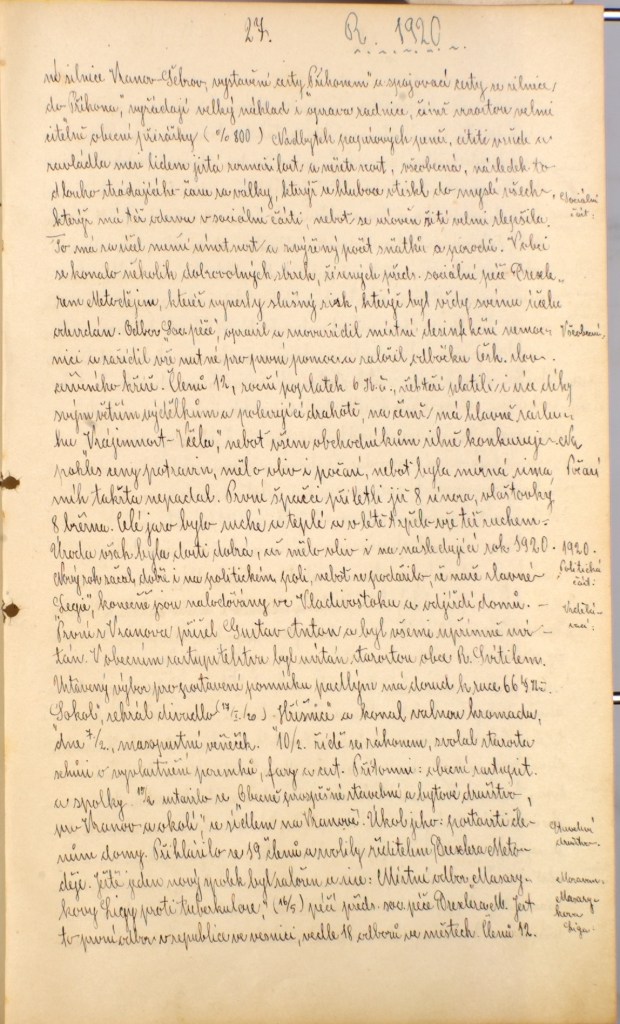 27. R. 1920
né silnice Vranov-Šebrov, vystavění cesty "Příhonem" a spojovací cesty se silnice
do Příhona, vyžádají velký náklad i oprava radnice, čímž vzrostou velmi
citelně obecní přirážky (% 800) Nadbytek papírových peněz, cítěti všude a
zavládla mezi lidem jistá rozmařilost a nšetrnost, všeobecná, následek to
dlouho strádajícího času za války, kterýž se hluboce vtiskl do myslí všech,
kterýž má též odezvu v sociální části, neboť se úroveň žití velmi zlepšila.
To má za účel menší úmrtnost a zvýšený počet sňatků a porodů. V obci
se konalo několik dobrovolných sbírek, řízených předs. sociální péče Drexle-
rem Metodějem, kteréž vynesly slušný zisk, kterýž byl vždy svému účelu
odevzdán. Odbor "Soc. péče", opravil a znovuzřídil místní desinfekční nemoc-
nici a zařídil vše nutné pro první pomoc a založil odbočku Česk. slov.
červeného kříže. Členů 12, roční poplatek 6 Kč., někteří platili i více díky
svým větším výdělkům a polevující drahotě, na čemž má hlavně záslu-
hu "Vzájemnost-Včela", neboť všem obchodníkům silně konkuruje. Na
pokles ceny potravin, mělo vliv i počasí, neboť byla mírná zima,
sníh takřka nepadal. První špačci přiletěli již 8 února, vlaštovky
8 března. Celé jaro bylo suché a teplé a v létě spělo vše též suchem.
Úroda však byla dosti dobrá, což mělo vliv i na následující rok 1920.
Nový rok začal dobře i na politickém poli, neboť se podařilo, že naše slavné
"Legie", konečně jsou naloďovány ve Vladivostoku a odjíždí domů. –
První z Vranova přišel Gustav Anton a byl všemi upřímně uví-
tán. V obecním zastupitelstvu byl uvítán starostou obce R. Svitilem.
Ustavený výbor pro postavení pomníku padlým má dosud k ruce 664 Kč.
"Sokol", sehrál divadlo (27/I./20) "Hříšnice" a konal valnou hromadu,
dne 7/2., masopustní věneček. 10/2. řídě se zákonem, svolal starosta
schůzi o vyvlastnění pozemků, fary a cet. Přítomni: obecní zastupit.
a spolky. ustavilo se "Obecně prospěšné stavební a bytové družstvo,
pro Vranov a okolí," se sídlem na Vranově. Úkol jeho: postaviti čle-
nům domy. Přihlásilo se 19 členů a zvolily ředitelem Drexlera Meto-
děje. Ještě jeden nový spolek byl založen a sice: "Místní odbor Masary-
kovy Ligy proti tuberkulose," (16/5) péčí předs. soc. péče Drexlera M. Jest
to první odbor v republice ve vesnici, vedle 18 odborů ve městech. Členů 12.
Sociální
část:
Všeobecní,
Počasí
1920.
Politická
část:
Vzdělá-
vací:
Stavební
družstvo.
Masary-
kova
Liga.